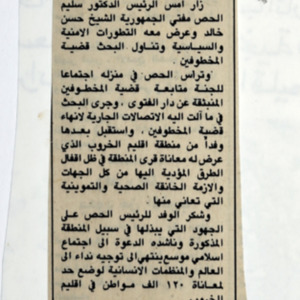 زار امس الرئيس الدكتور سليم
الحص مفتي الجمهورية الشيخ حسن
خالد وعرض معه التطورات الامنية
والسياسية وتناول البحث قضية
المخطوفين.
وترأس الحص في منزله اجتماعا
للجنة متابعة قضية المخطوفين
المنبثقة عن دار الفتوى، وجرى البحث
في ما آلت اليه الاتصالات الجارية لانهاء
قضية المخطوفين. واستقبل بعدها
وفداً من منطقة اقليم الخروب الذي
عرض له معاناة قرى المنطقة في ظل اقفال
الطرق المؤدية اليها من كل الجهات
والازمة الخانقة الصحية والتموينية
التي تعاني منها.
وشكر الوفد للرئيس الحص على
الجهود التي يبذلها في سبيل المنطقة
المذكورة وناشده الدعوة الى اجتماع
اسلامي موسع ينتهي الى توجيه نداء الى
العالم والمنظمات الانسانية لوضع حد
لمعاناة ١٢٠ الف مواطن في اقليم
الخروب